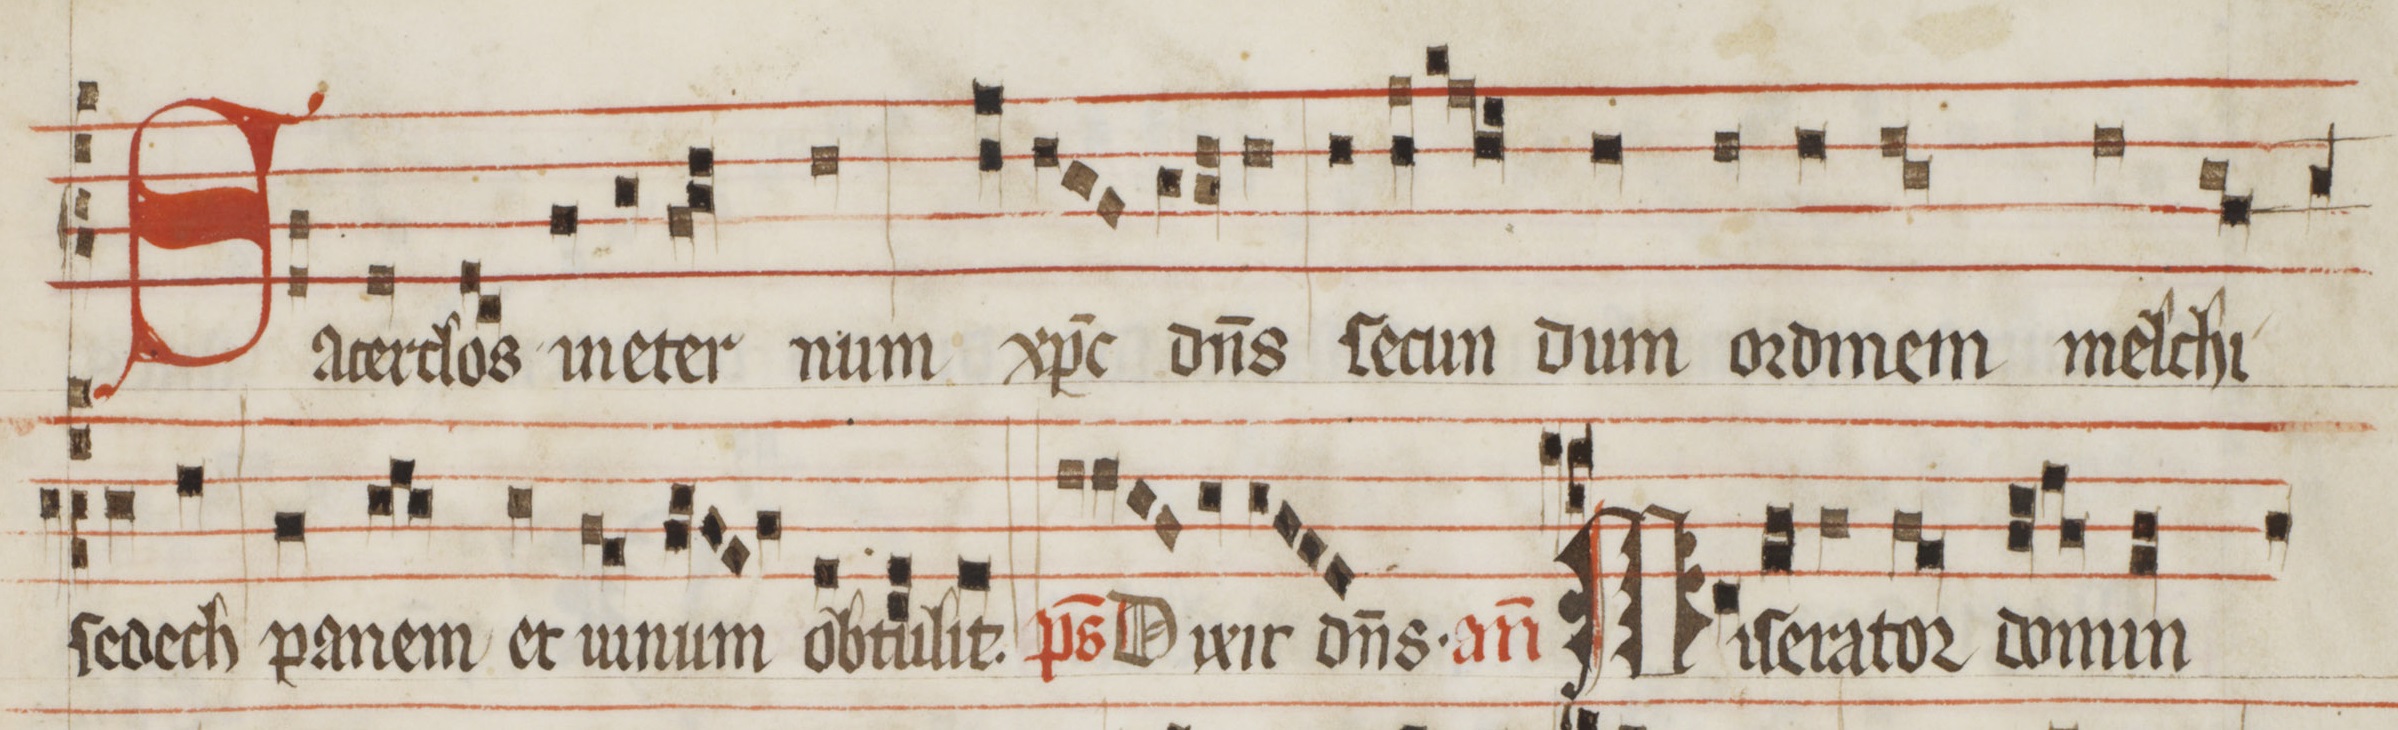 Sacerdos in eter num xp̄c dn̄s secun dum ordinem melchi
sedech panem et uinum obtulit. ps̄ Dixit dn̄s. an̄ Miserator domin